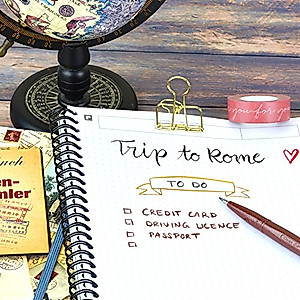 you for yo
Trip to Rome
TO DO
CREDIT CARD
DRIVING LICENCE
PASSPORT
nch
en-
mler